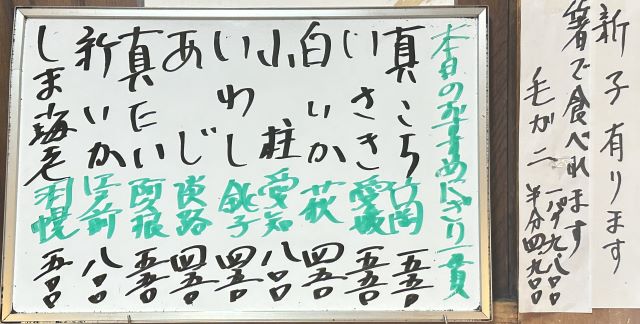 新子有ります
箸で食べれます
毛がニ
九八〇〇
半分四九〇〇
本日のおすすめにぎり一貫
真こち 竹岡 五五〇
いさき 愛媛 五五〇
白いか 萩 四五〇
小柱 愛知 八〇〇
いわし 銚子 四五〇
あじ 淡路 四五〇
真だい 五五〇
新いか 八〇〇
しま海老 羽幌 五〇〇